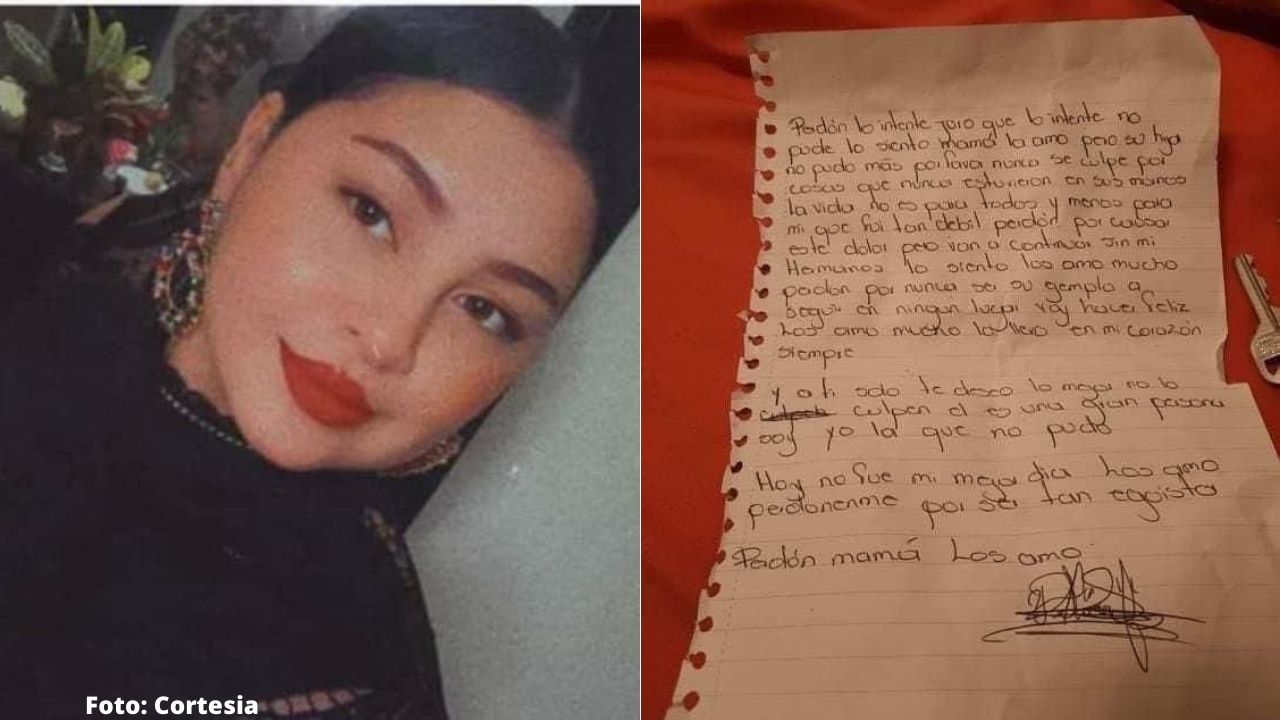 Perdón lo intente juro que lo intente no
pude lo siento mamá la amo pero su hija
no pudo más porfavor nunca se culpe por
cosas que nunca estuvieron en sus manos
la vida no es para todos y menos para
mi que fui tan debil perdón por causar
este dolor pero van a continuar sin mi
Hermanos lo siento los amo mucho
perdon por nunca ser su ejemplo a
seguir en ningun lugar
Los amo mucho en mi corazón
siempre
Y a ti solo te deseo lo mejor no lo
culpen el es una gran persona
soy yo la que no pudo
Hoy no fue mi mejor dia Los amo
perdonenme por ser tan egoista
Perdón mamá Los amo
Foto: Cortesia